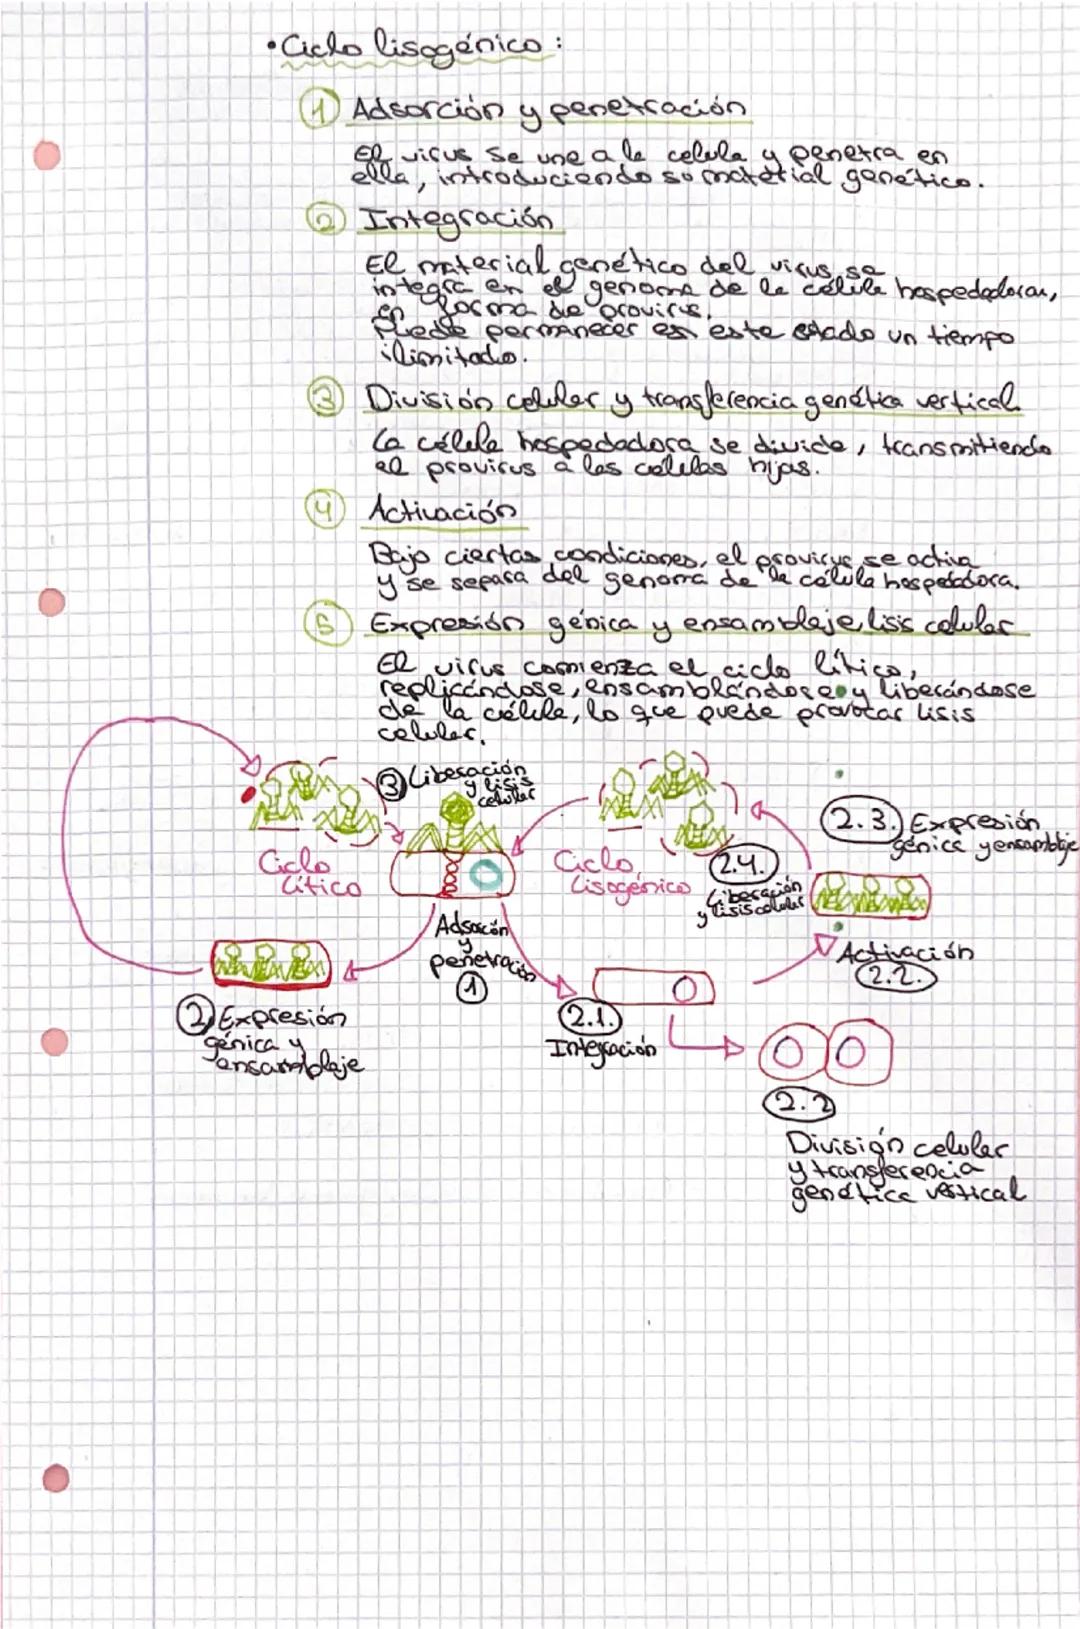 • Ciclo lisogénico:
1 Adsorción y penetración
El virus se une a la celula y penetra en
ella, introduciendo so material genético.
2 Integración
El material genético del virus se
integra en el genoma de la célula hospedadoran,
en forma de provirus.
Puede permanecer en este estado un tiempo
ilimitado.
3 División celular y transferencia genética vertical
La célula hospedadora se divide, transmitiendo
el provirus a las celulas hijas.
4 Activación
Bajo ciertas condiciones, el provirus se activa
y se separa del genoma de la célula hospedadora.
5 Expresión génica y ensamblaje, lisis celular
El virus comienza el ciclo lítico,
replicándose, ensamblándose y liberándose
de la célula, lo que puede provocar lisis
celular.
3 Liberación
y lisis
celular
Ciclo
Lítico
Adsorción
y
penetración
1
2 Expresión
génica y
ensamblaje
Ciclo
Lisogénico
2.4.
Liberación
y lisis celular
2.3. Expresión
génica y ensamblaje
Activación
2.2.
2.1.
Integración
2.2
División celular
y transferencia
genética vertical